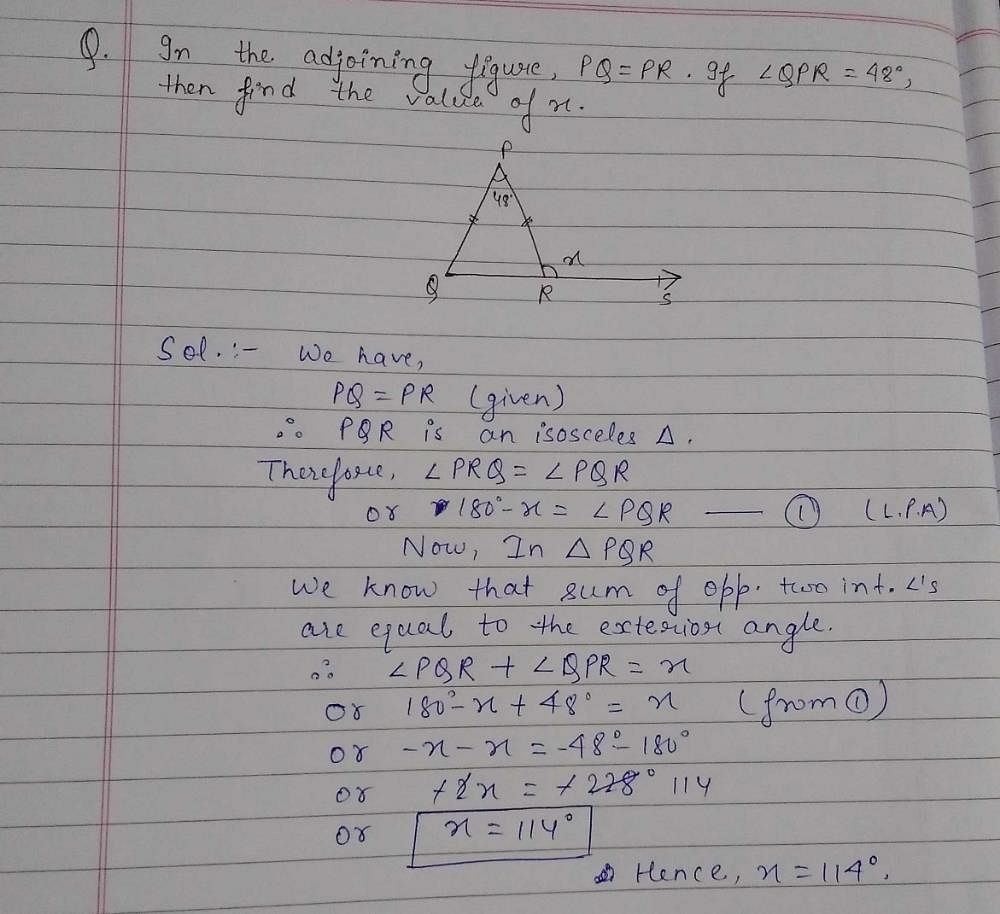 Q. In the adjoining figure, PQ = PR. If ∠QPR = 48°,
then find the value of x.
P
48°
x
Q R S
Sol. :- We have,
PQ = PR (given)
∴ PQR is an isosceles Δ.
Therefore, ∠PRQ = ∠PQR
or 180° - x = ∠PQR —— ① (L.P.A)
Now, In Δ PQR
We know that sum of opp. two int. ∠'s
are equal to the exterior angle.
∴ ∠PQR + ∠QPR = x
or 180° - x + 48° = x (from ①)
or -x - x = -48° - 180°
or +2x = +228° 114
or x = 114°
Hence, x = 114°.